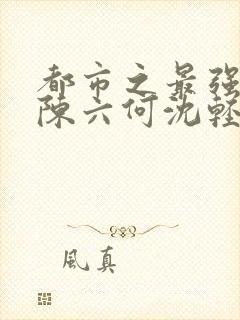 都市之最强
陳六何沈輕
風真